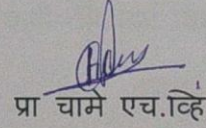 प्रा चामे एच.व्हि